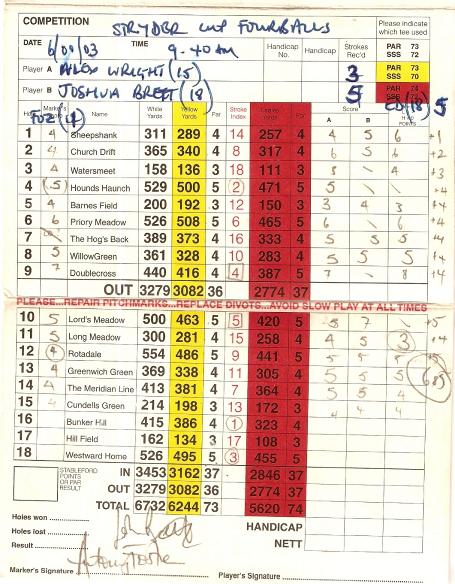 COMPETITION STRYDER CUP FOURBALLS Please indicate which tee used
DATE 6/09/03 TIME 9.40 AM Handicap No. Handicap Strokes Rec'd PAR 73 SSS 72
Player A ALEX WRIGHT (15) 3 PAR 73 SSS 70
Player B JOSHUA BRETT (18) 5 PAR 74 SSS 72
Marker's Name White Yards Yellow Yards Par Stroke Index Yards Par Score A B POINTS
1 4 Sheepshank 311 289 4 14 257 4 4 5 6 +1
2 4 Church Drift 365 340 4 8 317 4 6 5 6 +2
3 4 Watersmeet 158 136 3 18 111 3 3 \ 4 +3
4 (5) Hounds Haunch 529 500 5 2 471 5 5 \ \ +4
5 4 Barnes Field 200 192 3 12 150 3 3 4 3 +4
6 6 Priory Meadow 526 508 5 6 465 5 6 \ \ +4
7 The Hog's Back 389 373 4 16 333 4 5 5 5 +4
8 5 WillowGreen 361 328 4 10 283 4 5 5 5 +4
9 7 Doublecross 440 416 4 4 387 5 7 \ 8 +4
OUT 3279 3082 36 2774 37
PLEASE...REPAIR PITCHMARKS...REPLACE DIVOTS...AVOID SLOW PLAY AT ALL TIMES
10 5 Lord's Meadow 500 463 5 5 420 5 8 7 \ +5
11 5 Long Meadow 300 281 4 15 258 4 4 5 3 +4
12 4 Rotadale 554 486 5 9 441 5 5 5 5
13 4 Greenwich Green 369 338 4 11 305 4 5 5 5
14 4 The Meridian Line 413 381 4 7 364 4 5 5 4
15 4 Cundells Green 214 198 3 13 172 3 4 4 4
16 Bunker Hill 415 386 4 1 323 4
17 Hill Field 162 134 3 17 108 3
18 Westward Home 526 495 5 3 455 5
STABLEFORD POINTS OR PAR RESULT
IN 3453 3162 37 2846 37
OUT 3279 3082 36 2774 37
TOTAL 6732 6244 73 5620 74
Holes won
HANDICAP
Holes lost
NETT
Result
Marker's Signature Player's Signature